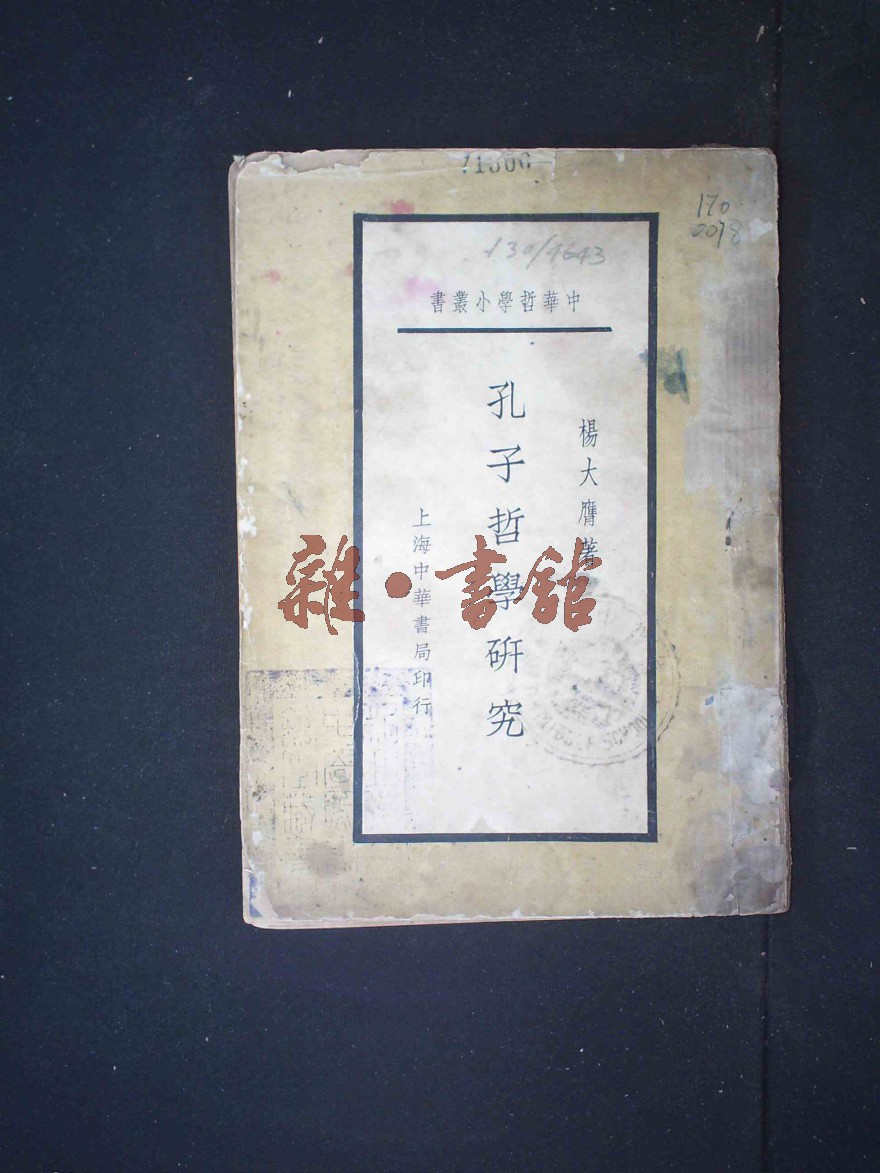 170
0078
130/4643
中華哲學小叢書
楊大膺著
孔子哲學研究
上海中華書局印行
雜·書館
MIDDLE SCHOOL